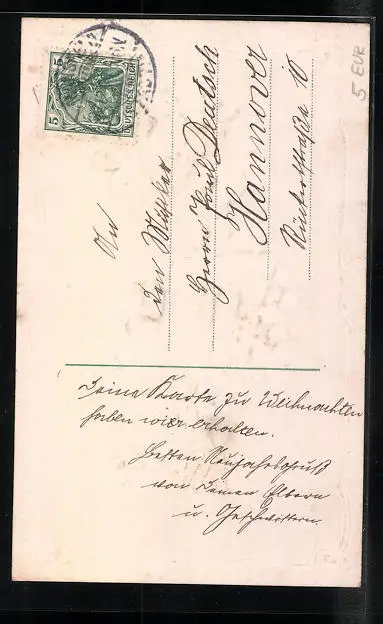 An
den Musketier
Herrn Paul Deutsch
Hannover
Rückertstraße 10
Deine Karte zu Weihnachten
haben wir erhalten.
Besten Neujahrsgruß
von deinen Eltern
u. Geschwistern.
5 EUR
5 5
DEUTSCHES REICH